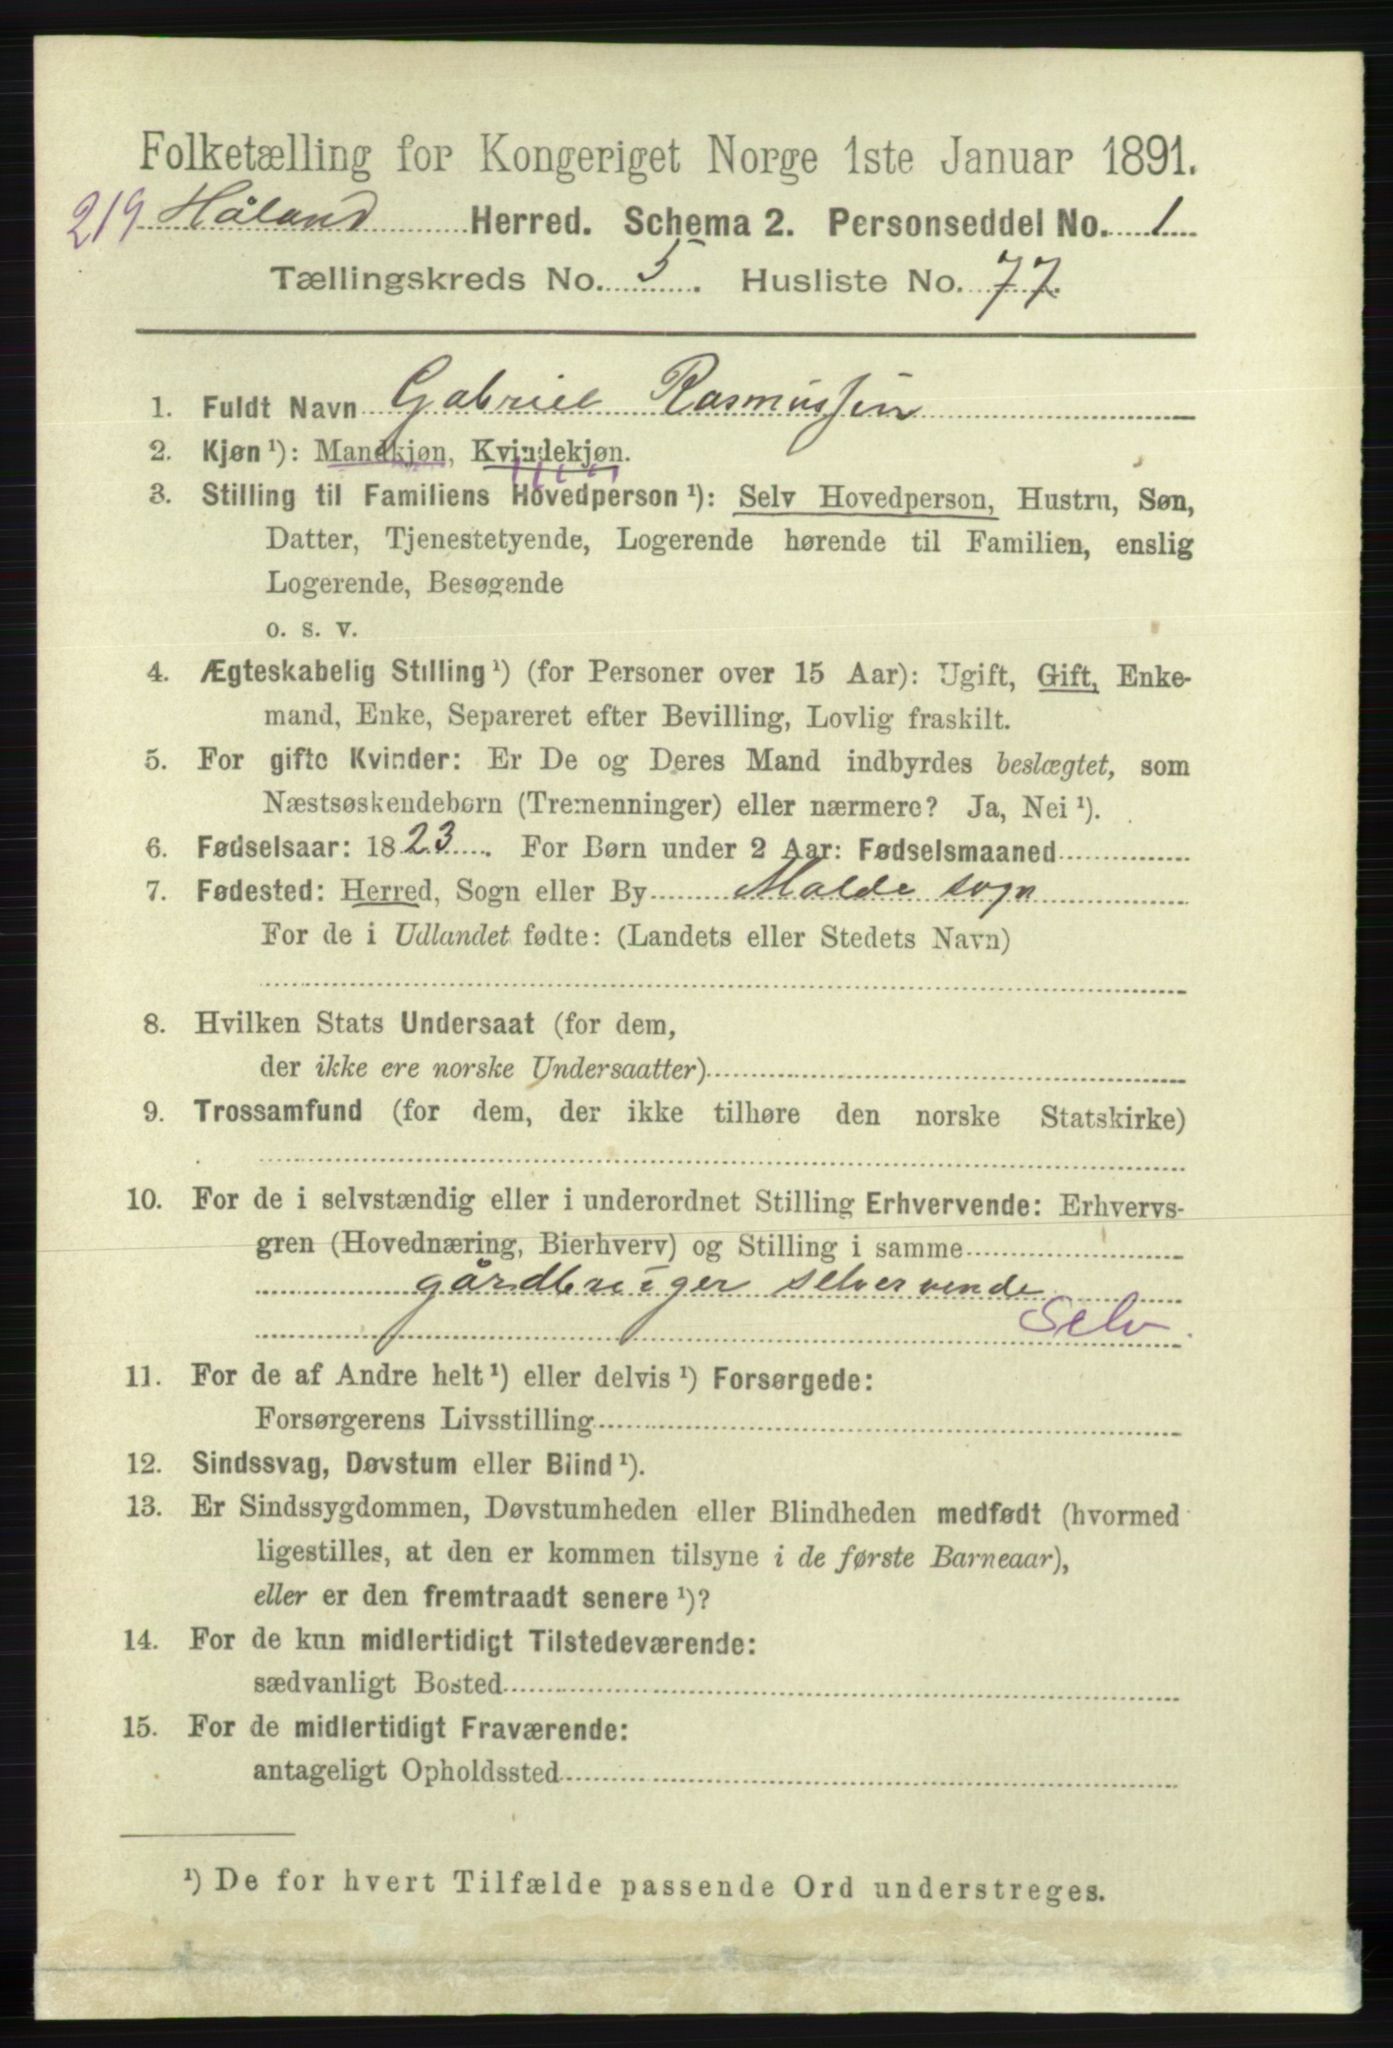 Folketælling for Kongeriget Norge 1ste Januar 1891.
219 Håland Herred. Schema 2. Personseddel No. 1
Tællingskreds No. 5. Husliste No. 77.
1. Fuldt Navn Gabriel Rasmussen
2. Kjøn¹): Mandkjøn, Kvindekjøn.
3. Stilling til Familiens Hovedperson¹): Selv Hovedperson, Hustru, Søn,
Datter, Tjenestetyende, Logerende hørende til Familien, enslig
Logerende, Besøgende
o. s. v.
4. Ægteskabelig Stilling¹) (for Personer over 15 Aar): Ugift, Gift, Enke-
mand, Enke, Separeret efter Bevilling, Lovlig fraskilt.
5. For gifte Kvinder: Er De og Deres Mand indbyrdes beslægtet, som
Næstsøskendebørn (Tremenninger) eller nærmere? Ja, Nei¹).
6. Fødselsaar: 1823. For Børn under 2 Aar: Fødselsmaaned
7. Fødested: Herred, Sogn eller By Malde sogn
For de i Udlandet fødte: (Landets eller Stedets Navn)
8. Hvilken Stats Undersaat (for dem,
der ikke ere norske Undersaatter)
9. Trossamfund (for dem, der ikke tilhøre den norske Statskirke)
10. For de i selvstændig eller i underordnet Stilling Erhvervende: Erhvervs-
gren (Hovednæring, Bierhverv) og Stilling i samme
gårdbruger selvervende
Selv
11. For de af Andre helt¹) eller delvis¹) Forsørgede:
Forsørgerens Livsstilling
12. Sindssvag, Døvstum eller Blind¹).
13. Er Sindssygdommen, Døvstumheden eller Blindheden medfødt (hvormed
ligestilles, at den er kommen tilsyne i de første Barneaar),
eller er den fremtraadt senere¹)?
14. For de kun midlertidigt Tilstedeværende:
sædvanligt Bosted
15. For de midlertidigt Fraværende:
antageligt Opholdssted
¹) De for hvert Tilfælde passende Ord understreges.